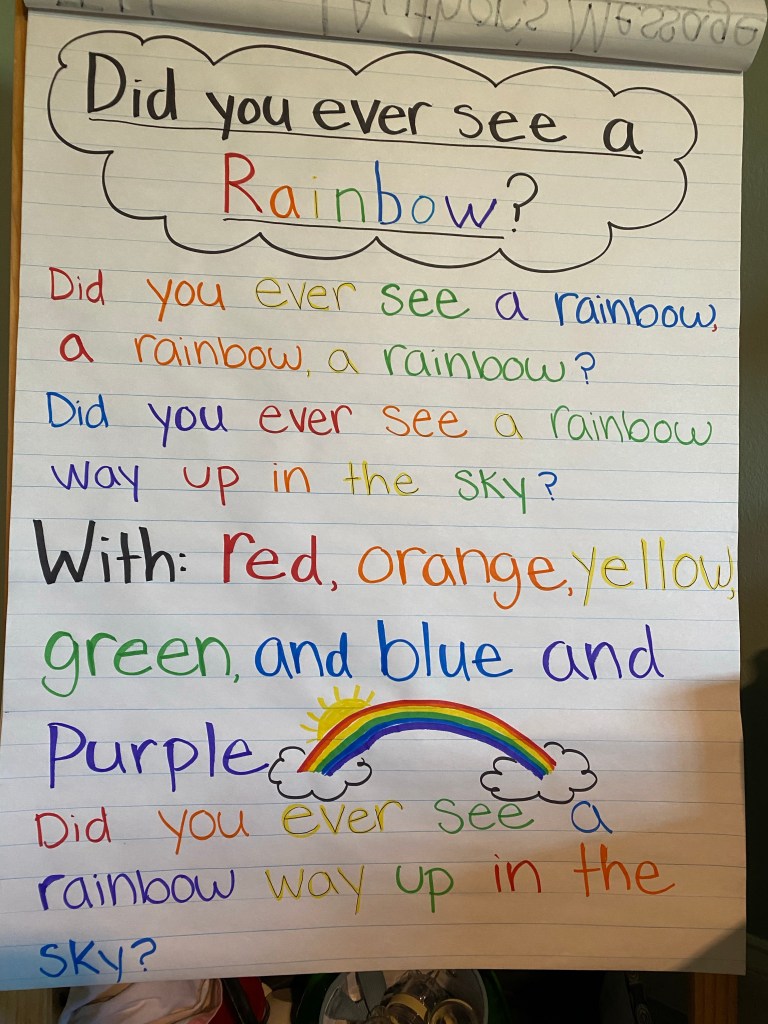 Author's Message
Did you ever see a
Rainbow?
Did you ever see a rainbow,
a rainbow, a rainbow?
Did you ever see a rainbow
way up in the sky?
With: red, orange, yellow,
green, and blue and
Purple
Did you ever see a
rainbow way up in the
sky?